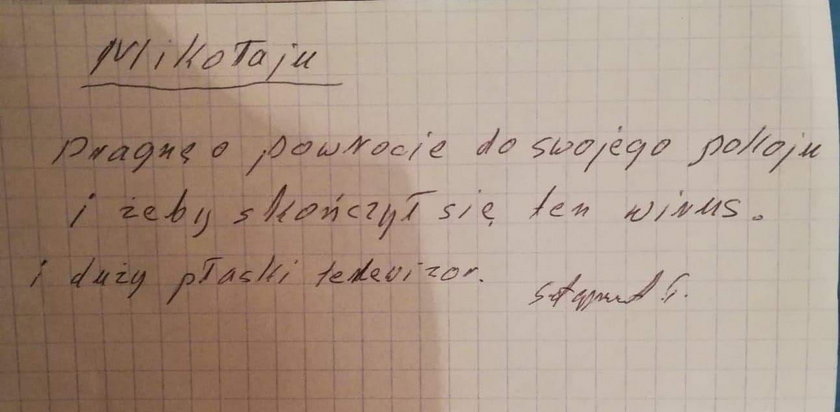 Mikołaju
Pragnę o powrocie do swojego pokoju
i żeby skończył się ten wirus.
i duży płaski telewizor.